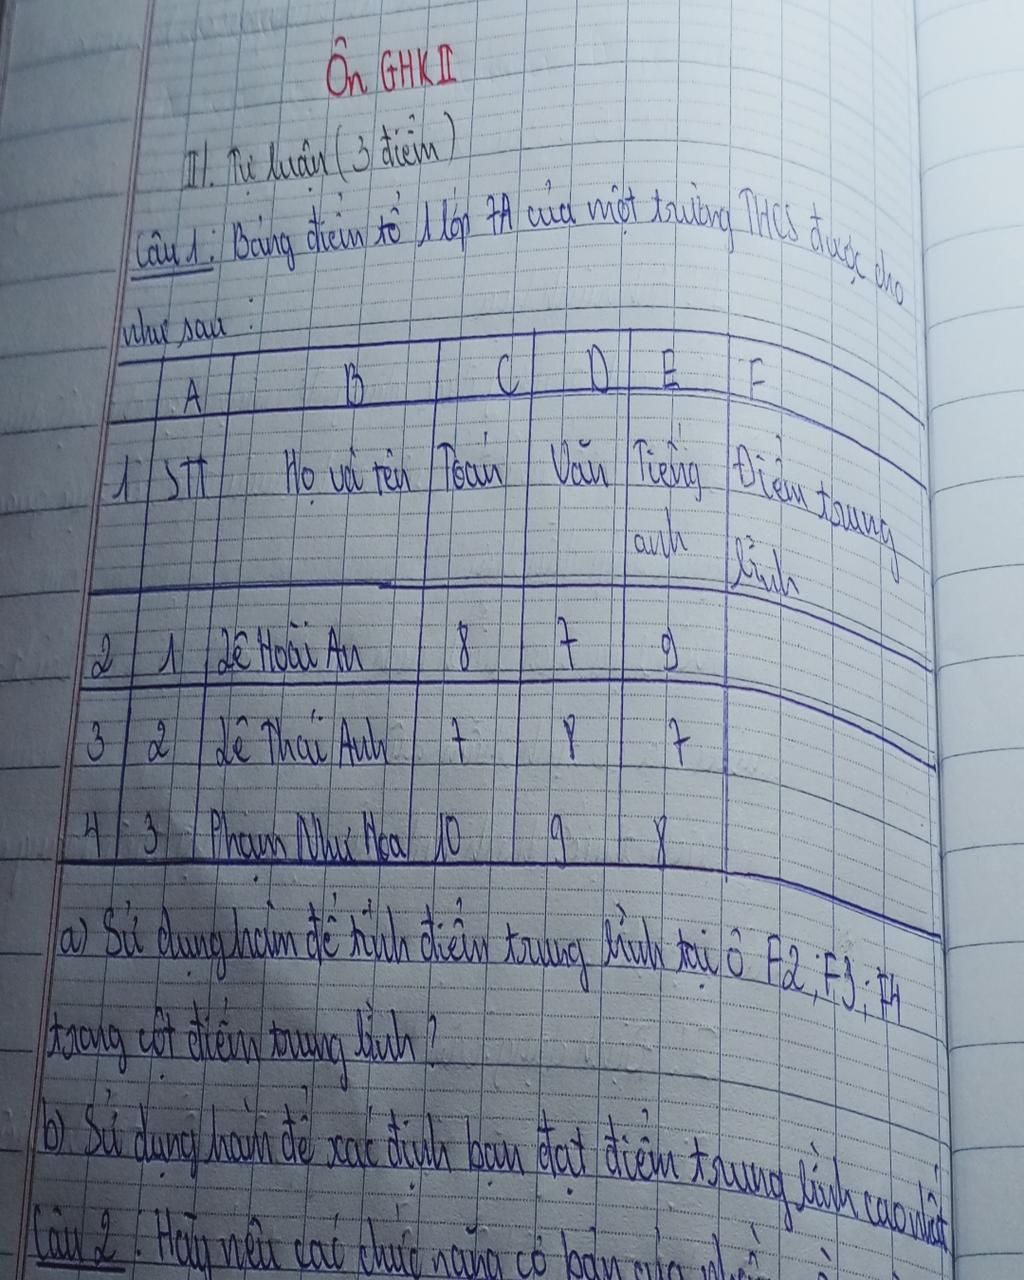 Ôn GHKII
II. Tự luận (3 điểm)
Câu 1: Bảng điểm tổ 1 lớp 7A của một trường THCS được cho
như sau :
A B C D E F
1 STT Họ và tên Toán Văn Tiếng Điểm trung
anh bình
2 1 Lê Hoài An 8 7 9
3 2 Lê Thái Anh 7 8 7
4 3 Phạm Như Hoa 10 9 8
a) Sử dụng hàm để tính điểm trung bình tại ô F2; F3; F4
trong cột điểm trung bình?
b) Sử dụng hàm để xác định bạn đạt điểm trung bình cao nhất
Câu 2: Hãy nêu các chức năng cơ bản của